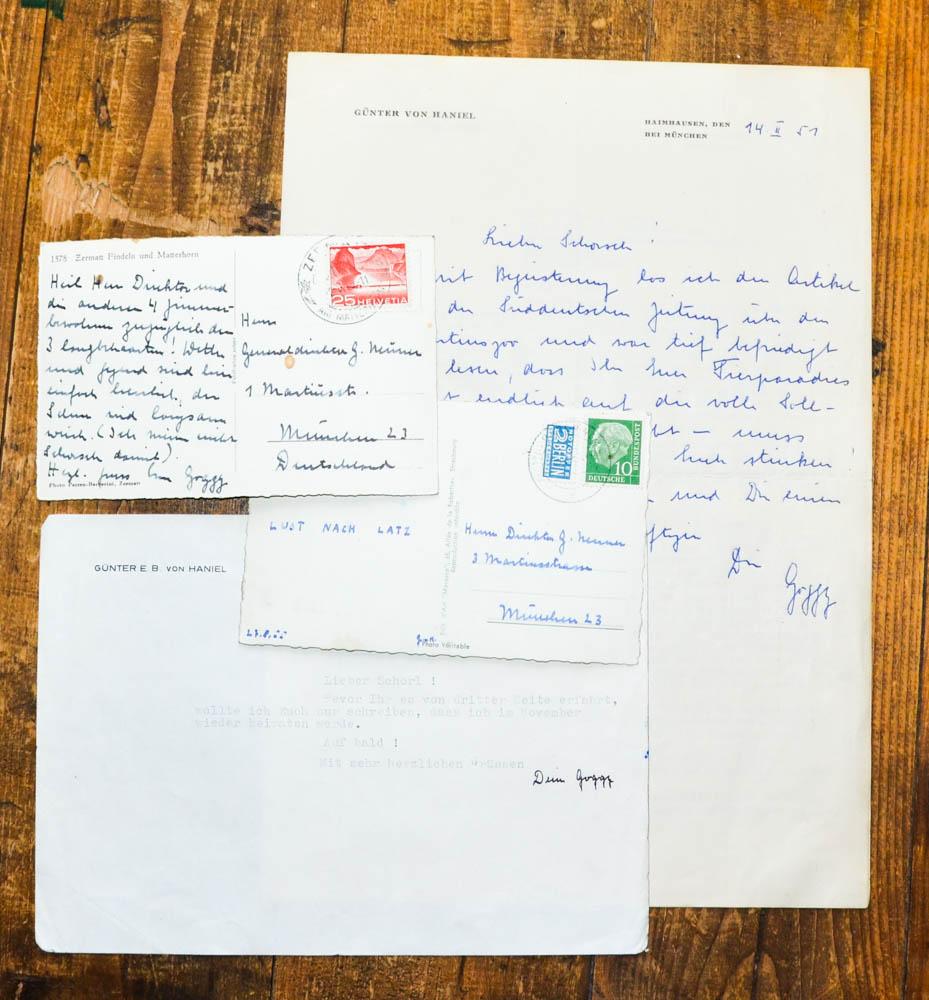 GÜNTER VON HANIEL
HAIMHAUSEN, DEN 14 II 51
BEI MÜNCHEN
Lieber Schorsch!
mit Begeisterung las ich den Artikel
der Süddeutschen Zeitung über den
und war tief befriedigt
lesen, dass Ihr Tierparadies
endlich auf die volle Soll-
muss
stinken!
und Dir einen
Dein Goggy
1578 Zermatt Findeln und Matterhorn
Heil Herr Direktor und
die anderen 4 Zimmer-
bewohner zuzüglich der
3 langhaarten! Wetter
und Jugend sind hier
einfach herrlich, der
Schnee wird langsam
weich. (Ich meine nicht
Schorsch damit)
Herzl. Euer Goggy
Photo Perren-Barberini, Zermatt
25 HELVETIA
Herrn
Generaldirektor G. Neuner
1 Martiusstr.
München 23
Deutschland
NOTOPFER
2 BERLIN
STEUERMARKE
10
DEUTSCHE BUNDESPOST
LUST NACH LATZ
Herrn Direktor G. Neuner
3 Martiusstrasse
München 23
27.8.55
Photo Véritable
Reproduction interdite
GÜNTER E. B. VON HANIEL
Lieber Schorl !
Bevor Ihr es von dritter Seite erfahrt,
wollte ich Euch nur schreiben, dass ich im November
wieder heiraten werde.
Auf bald !
Mit sehr herzlichen Grüssen
Dein Goggy